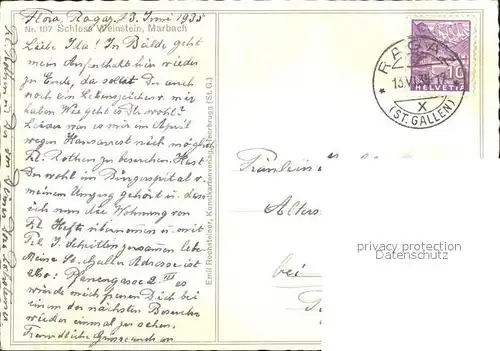 Flora, Ragaz, 13. Juni 1935
Nr. 107 Schloss Weinstein, Marbach
Liebe Ida! In Bälde geht
mein Aufenthalt hier wieder
zu Ende, da sollst Du auch
noch ein Lebenszeichen v. mir
haben. Wie geht es Dir wohl?
Leider war es mir im April
wegen Hausarrest nicht möglich
Rothen zu besuchen. Hast
Du wohl im Bürgerspital v.
meinem Umzug gehört u. dass
ich nun die Wohnung von
Frl. Hefti übernommen u. mit
Frl. J. Schilling zusammen lebe.
Meine St. Galler Adresse ist
also: 2 III es
würde mich freuen Dich bei
einem der nächsten Besuche
wieder einmal zu sehen.
Freundliche Grüsse auch an
Emil Rechsteiner, Kunstkartenverlag, Heerbrugg (St. G.)
RAGAZ
13.VI.35.-17
X
(ST. GALLEN)
10
HELVETIA
Fräulein
Alters
bei
privacy protection
www.ansichtskarten-center.de